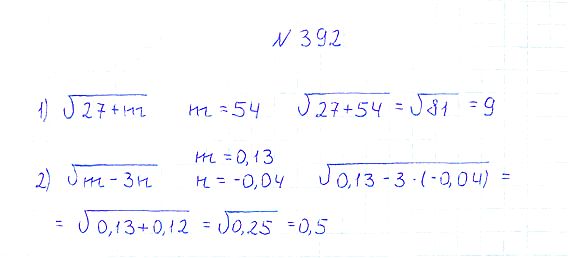 N 392
1) √27+m m = 54 √27+54 = √81 = 9
m = 0,13
2) √m - 3n n = -0,04 √0,13 - 3 · (-0,04) =
= √0,13 + 0,12 = √0,25 = 0,5